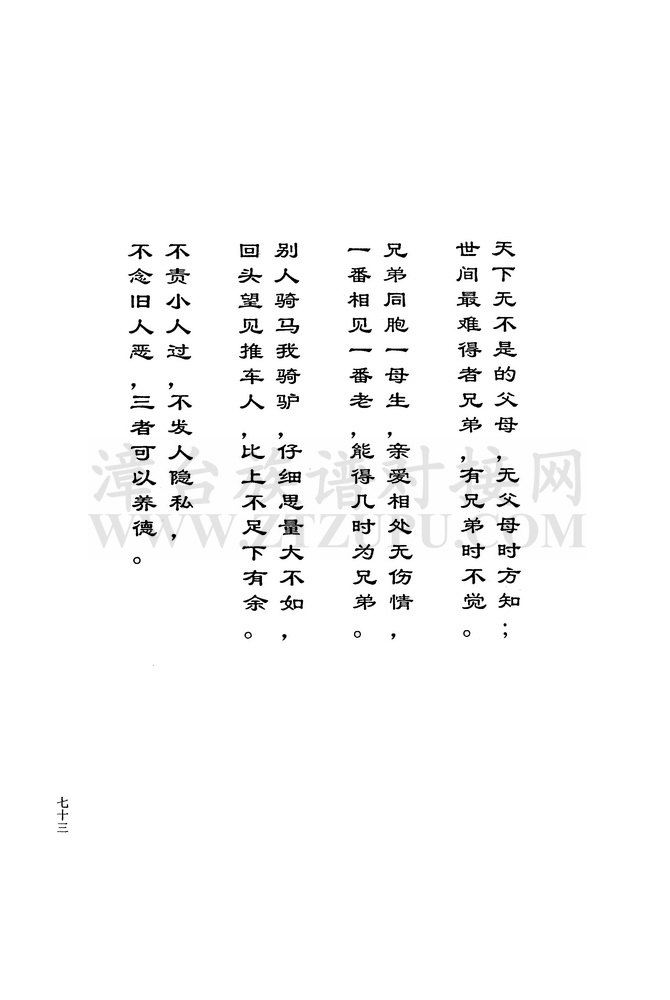 天下无不是的父母,无父母时方知;
世间最难得者兄弟,有兄弟时不觉。
兄弟同胞一母生,亲爱相处无伤情,
一番相见一番老,能得几时为兄弟。
别人骑马我骑驴,仔细思量大不如,
回头望见推车人,比上不足下有余。
不责小人过,不发人隐私,
不念旧人恶,三者可以养德。
七十三
漳台族谱对接网
WWW.ZTZUPU.COM